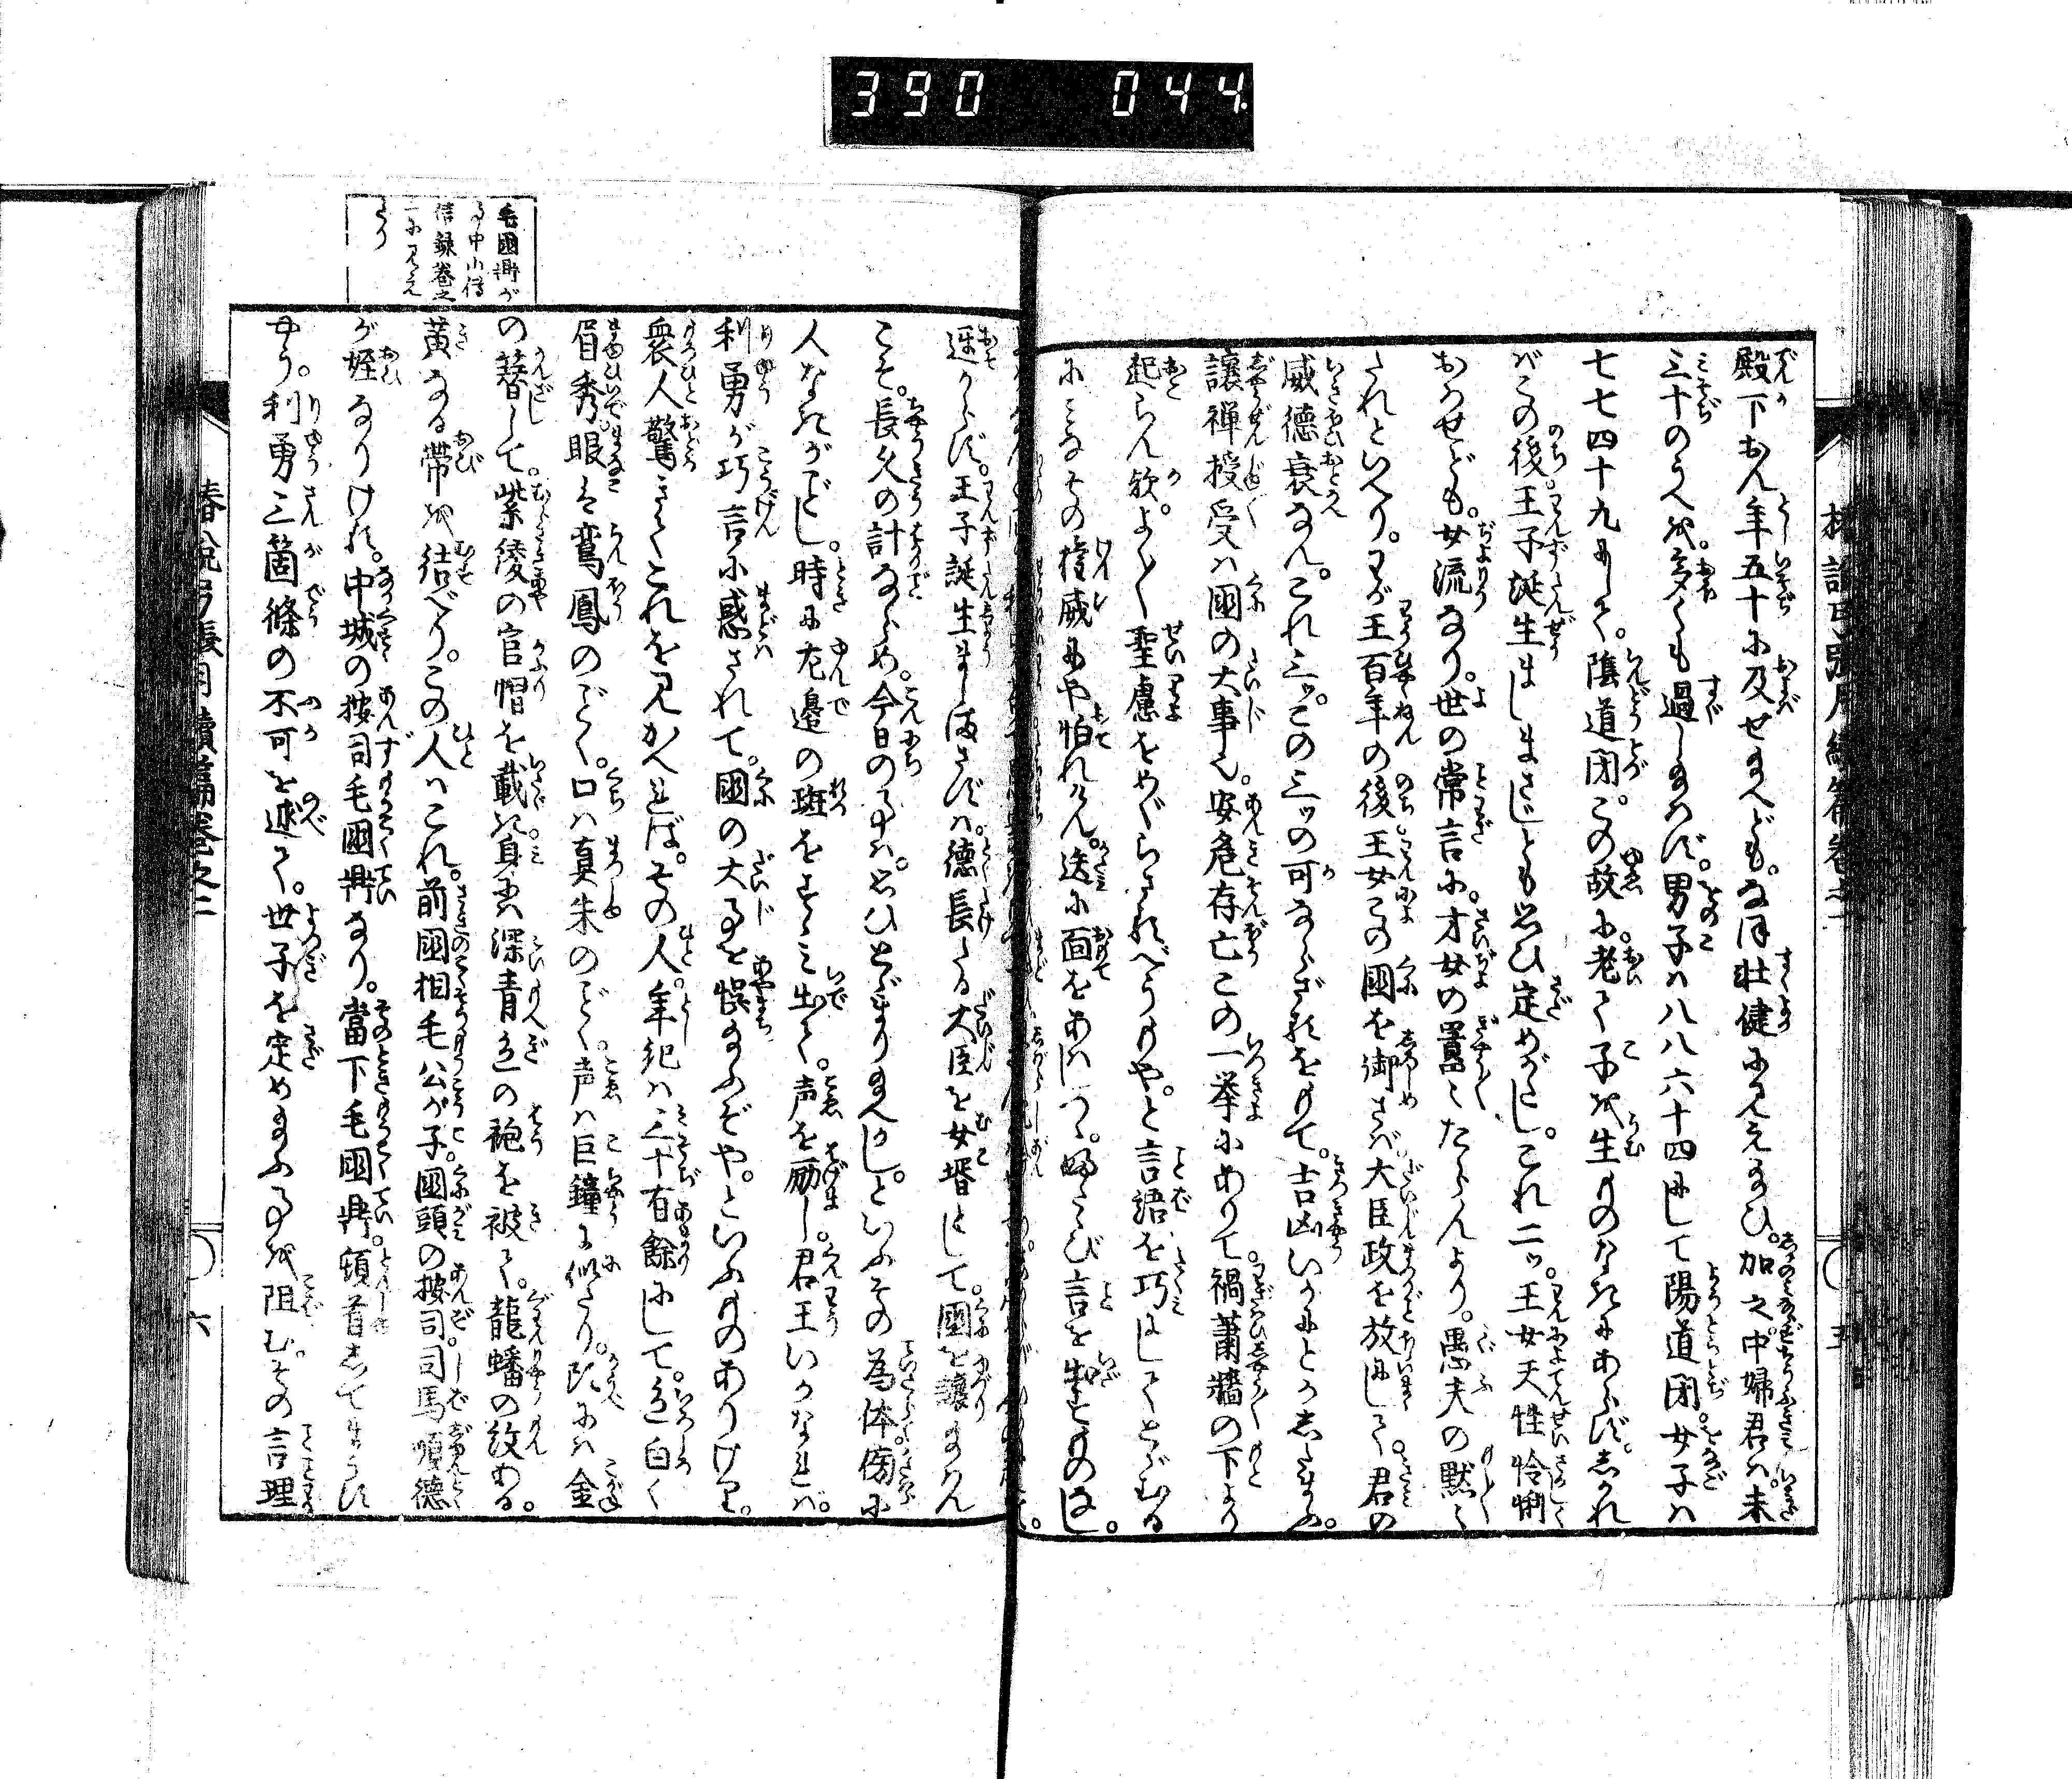 390 044
殿下おん年五十に及せ給へども。なほ壮健に見え給ひ。加之中婦君は。未
三十のうへを。多くも過し給はず。男子は八八六十四にして陽道閉。女子は
七七四十九にして。陰道閉。この故に。老て子を生ものなきにあらず。しかれ
ばこの後。王子誕生ましまさじとも思ひ定めがたし。これ二ッ。王女天性怜悧
おはせども。女流なり。世の常言に。才女の囂々たらんより。愚夫の黙々
たれといへり。わが王百年の後。王女この國を御さば。大臣政を放にして。君の
威徳衰なん。これ三ッ。この三ッの可ならざるをもて。吉凶いかにとか志給ふ。
讓禅授受は國の大事也。安危存亡この一挙にありて。禍蕭牆の下より
起らん欤。よく/\聖慮をめぐらさるべうもや。と言語を巧にしてとゞむる
にぞ。みなその権威にや怕れけん。迭に面をあはしつゝ。ふたゝび言を出すものなし。
遅からず。王子誕生ましまさずは。徳長たる大臣を女壻にして。國を讓給はん
こそ。長久の計ならめ。今日の事は。思ひとゞまり給へかし。といふその為体傍に
人なきがごとし。時に右邊の班をすゝみ出て。声を励し。君王いかなれば。
利勇が巧言に惑されて。國の大事を悞給ふぞや。といふものありけり。
衆人驚きてこれを見かへれば。その人。年紀は三十有餘にして。色白く
眉秀。眼は鸞鳳のごとく。口は真朱のごとく。声は巨鐘に似たり。頭には金
の簪して。紫綾の官帽を載き。身には深青色の袍を被て。龍蟠の紋ある。
黄なる帯を結べり。この人はこれ。前國相毛公が子。國頭の按司。司馬順徳
が姪なりければ。中城の按司毛國鼎なり。當下毛國鼎。頓首して申すは
やう。利勇三箇條の不可を述て。世子を定め給ふ事を阻む。その言理
毛國鼎が
事中山傳
信録巻之
一に見え
たり
椿説弓張月續篇巻之二
五
六